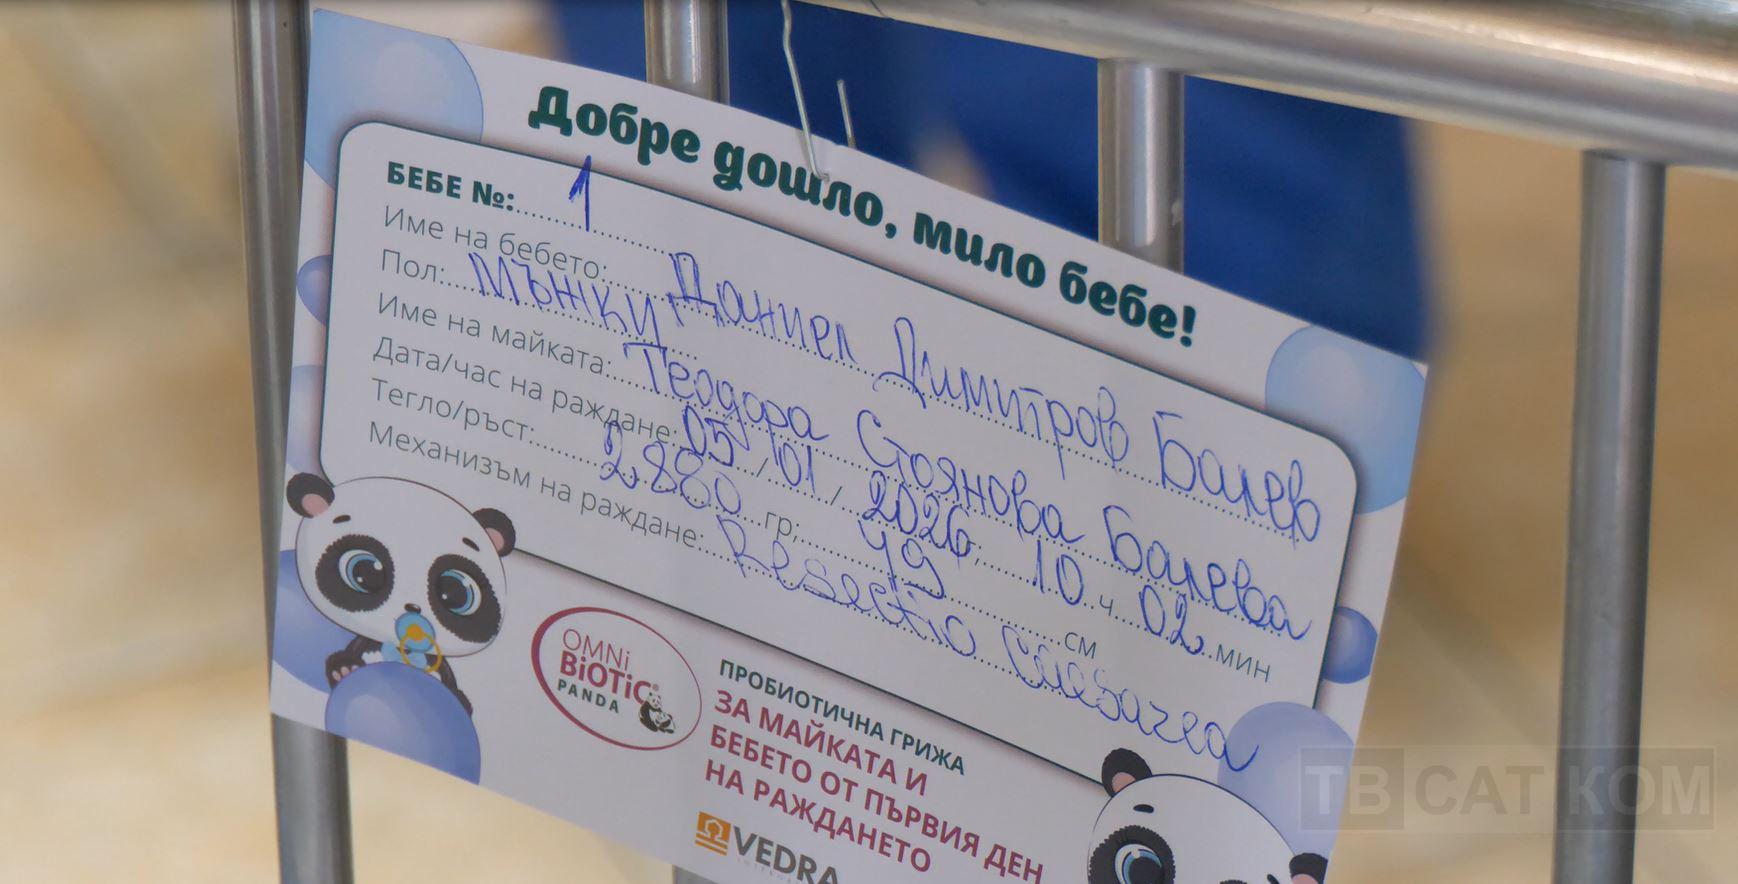 Добре дошло, мило бебе!
БЕБЕ №: 1
Име на бебето: Даниел Димитров Балев
Пол: Мъжки
Име на майката: Теодора Стоянова Балева
Дата/час на раждане: 05/01/2026, 10 ч. 02 мин
Тегло/ръст: 2880 гр; 49 см
Механизъм на раждане: Resectio Caesarea
OMNi
BiOTiC®
PANDA
ПРОБИОТИЧНА ГРИЖА
ЗА МАЙКАТА И
БЕБЕТО ОТ ПЪРВИЯ ДЕН
НА РАЖДАНЕТО
VEDRA
ТВ САТ КОМ